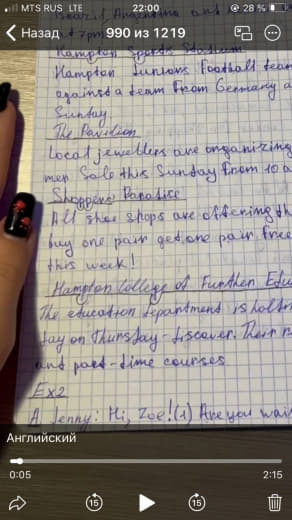 MTS RUS LTE
22:00
28 %
Назад
990 из 1219
Brazil, Argentina and
at 7pm
Hampton Sports Stadium
Hampton Juniors Football team
against a team from Germany
Sunday.
The Pavilion
Local jewellers are organizing
mer Sale this Sunday from 10 a
Shoppers' Paradise
All shoe shops are offering th
buy one pair get one pair free
this week!
Hampton College of Further Edu
The education department is hol
day on Thursday discover. Their
and part-time courses
Ex2
A Jenny: Hi, Zoe! (1) Are you wai
Английский
0:05
2:15
15
15